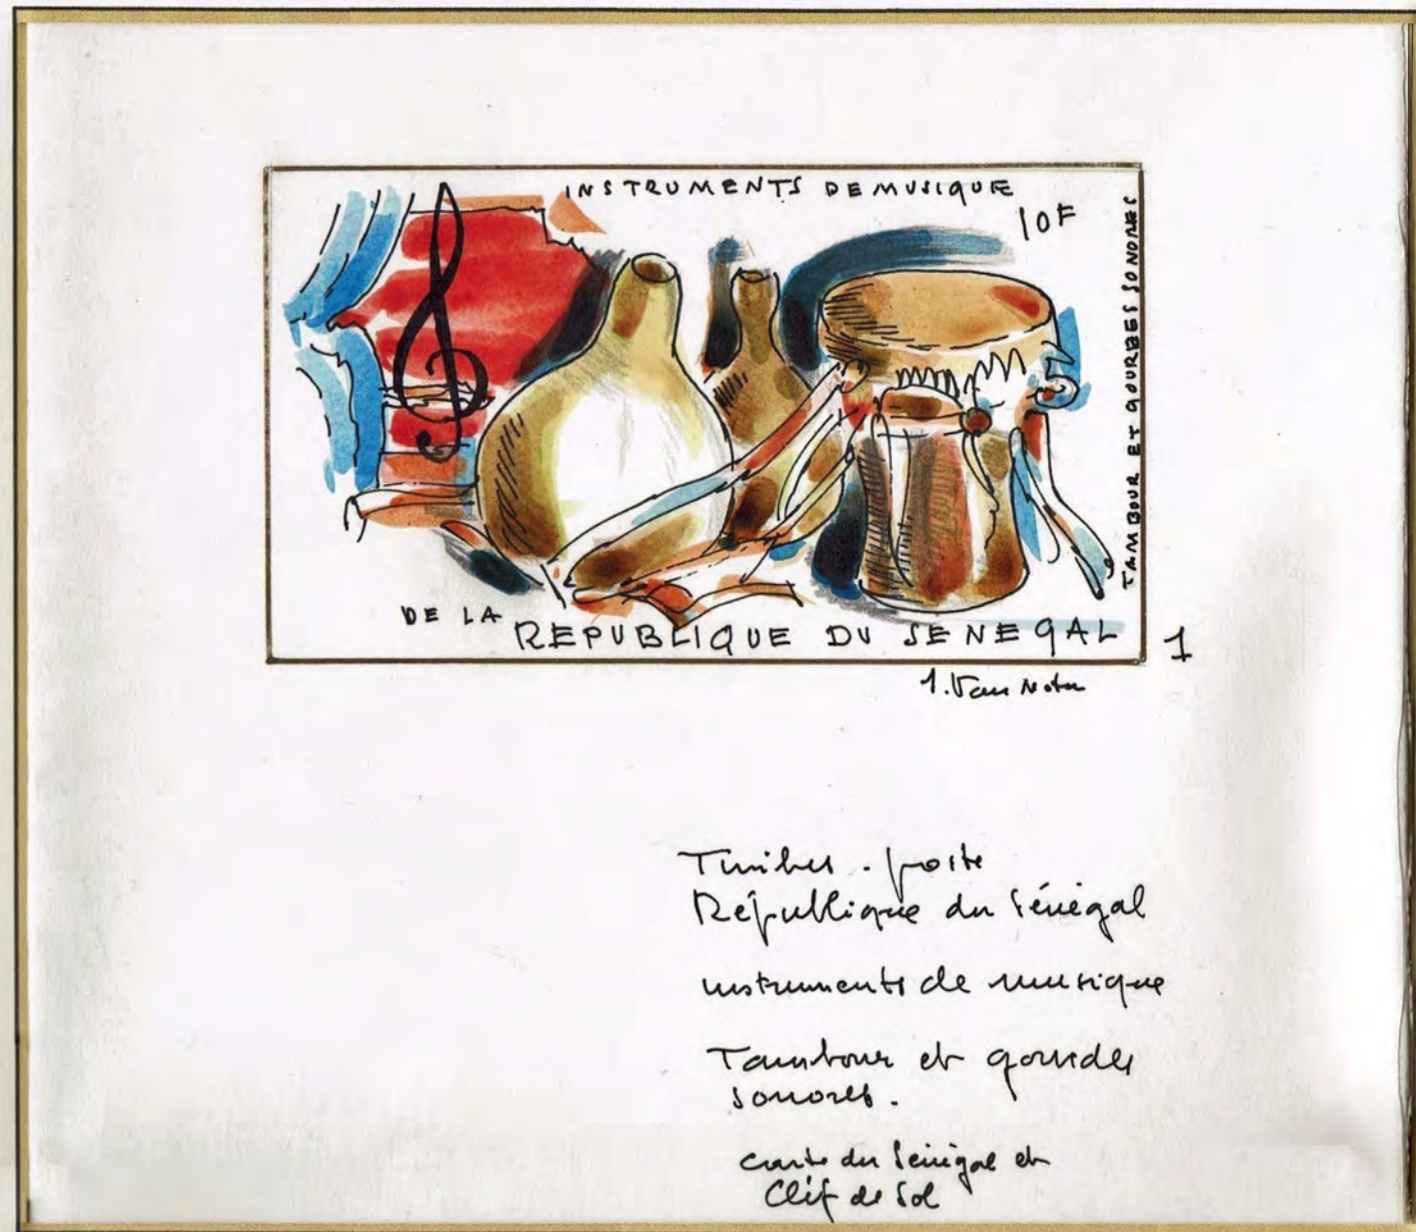 INSTRUMENTS DE MUSIQUE
10F
TAMBOUR ET GOURDES SONORES
DE LA
REPUBLIQUE DU SENEGAL
1
J. Van Noten
Timbres-poste
République du Sénégal
instruments de musique
Tambour et gourdes
sonores.
carte du Sénégal et
Cléf de Sol